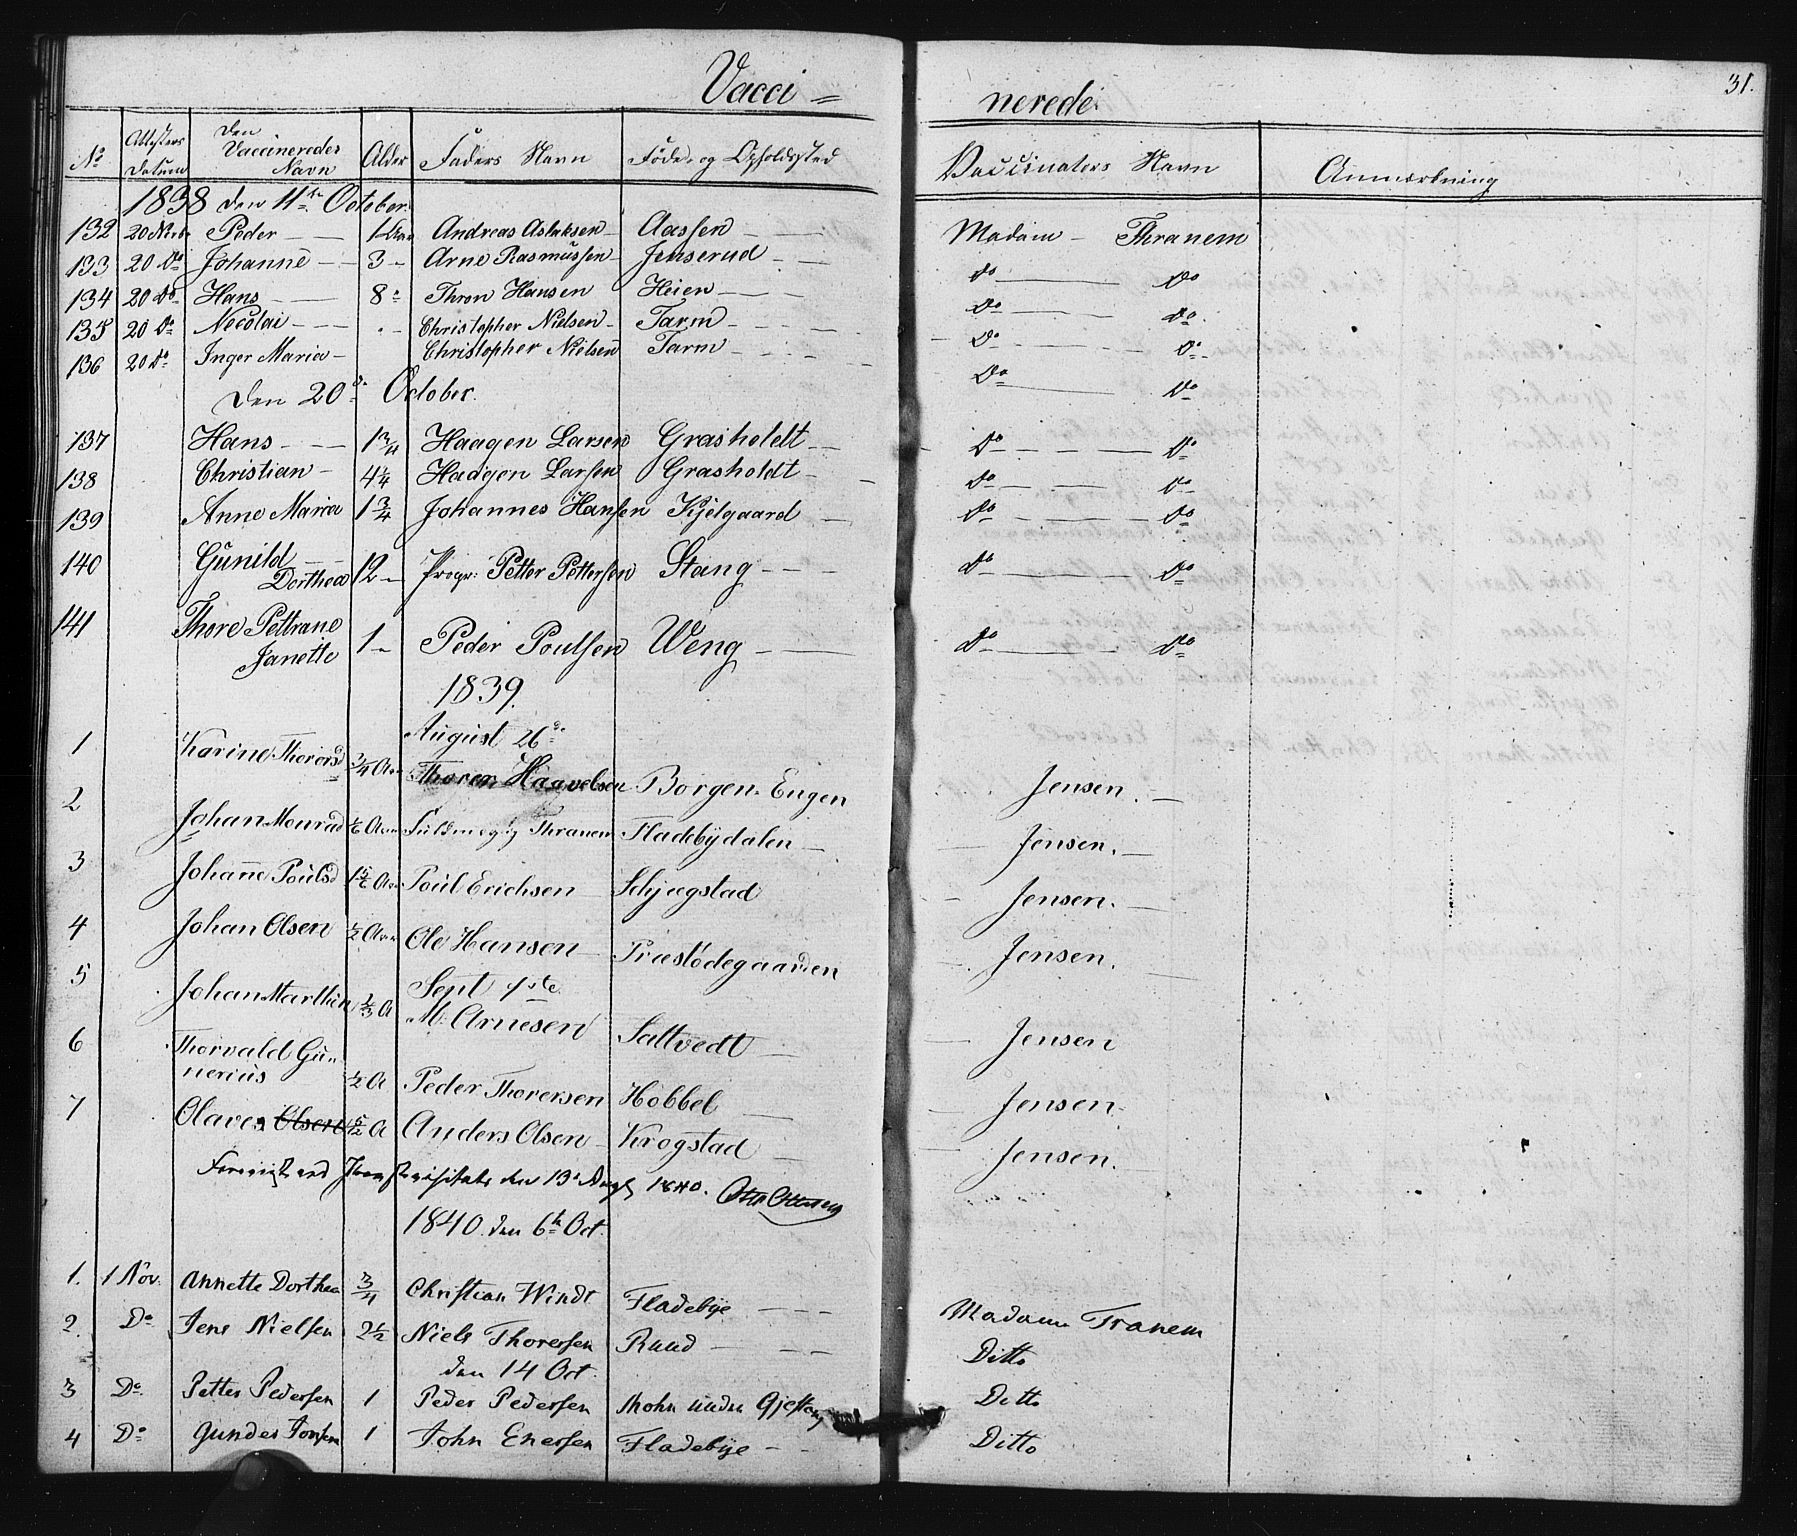 Vacci = nerede. 31.
No Attesters Datum Den Vaccineredes Navn Alder Faders Navn Føde- og Opholdssted Vaccinators Navn Anmærkning
1838 den 11te October.
132 Peder 1 Aar Andreas Aslaksen Aassen Madam Thranem
133 20 Do Johanne 3 Arne Rasmussen Jenserud Do Do
134 20 Do Hans 8 Thron Hansen Heien Do Do
135 20 Do Necolai Christopher Nielsen Tarm Do Do
136 20 Do Inger Maria Christopher Nielsen Tarm Do Do
Den 20de October.
137 Hans Haagen Larsen Grasholdt Do Do
138 Christian 4 1/4 Haagen Larsen Grasholdt Do Do
139 Anne Maria 1 3/4 Johannes Hansen Kjelgaard Do Do
140 Gunild Dorthea 12 Petter Pettersen Stang Do Do
141 Thore Pettrane Janette 1 Peder Poulsen Weng Do Do
1839.
August 26de
1 Karine Thorersd 3/4 Aar Thorer Haavelsen Borgen Eugen Jensen.
2 Johan Monrad Thranem Fladebydalen Jensen.
3 Johanne Poulsd 1 5/6 Aar Poul Erichsen Schjægstad Jensen.
4 Johan Olsen 1/2 Aar Ole Hansen Præstødegaarden Jensen.
Sept 1ste
5 Johan Marthin A M. Arnesen Saltvedt Jensen
6 Thorvald Gunerius 1/2 A Peder Thorersen Hobbel Jensen.
7 Olaves Olsen 5/12 A Anders Olsen Krogstad Jensen.
Foreviist ved Provstevisitats den 13 Augs 1840.
1840 den 6te Oct.
1. 1 Nov. Annette Dorthea 3/4 Christian Windt Fladebye Madame Tranem
2. Do Jens Nielsen 2 1/2 Niels Thoresen Ruud Ditto
den 14 Oct.
3 Do Petter Pedersen 1 Peder Pedersen Mohn under Gjestang Ditto
4 Do Gunder Jonsen 1 John Enersen Fladebye Ditto